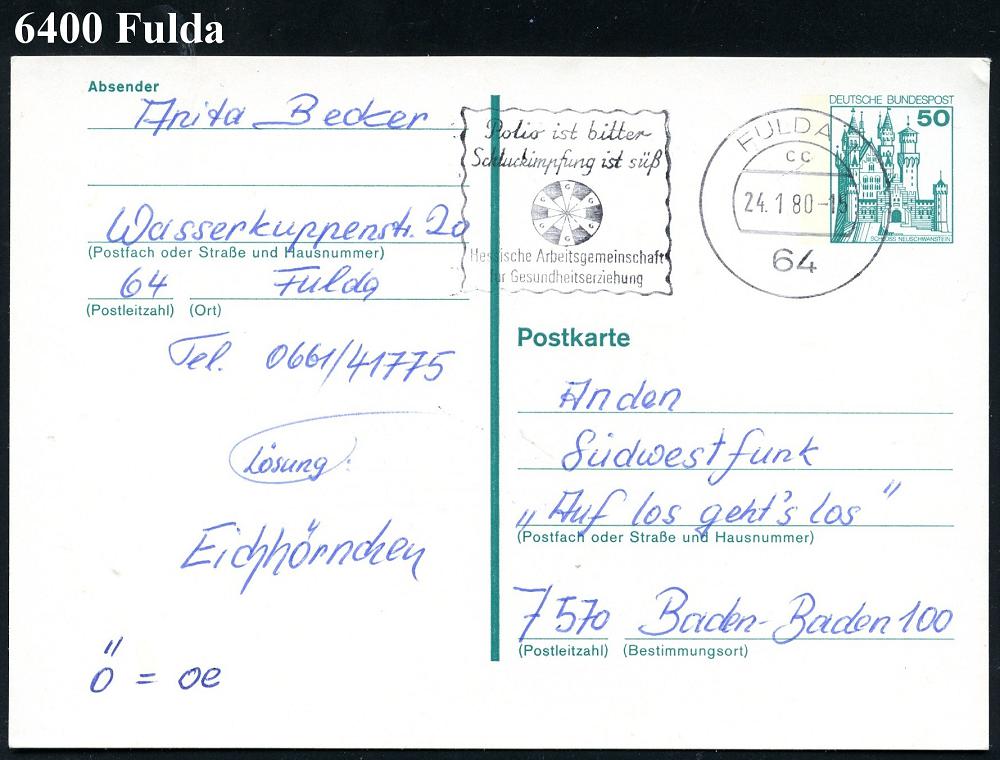 6400 Fulda
Absender
Anita Becker
Wasserkuppenstr. 20
(Postfach oder Straße und Hausnummer)
64 Fulda
(Postleitzahl) (Ort)
Tel. 0661/41775
Lösung:
Eichhörnchen
Ö = oe
Polio ist bitter
Schluckimpfung ist süß
Hessische Arbeitsgemeinschaft
für Gesundheitserziehung
FULDA
cc
24.1.80-
64
DEUTSCHE BUNDESPOST
50
SCHLOSS NEUSCHWANSTEIN
Postkarte
An den
Südwestfunk
„Auf los geht's los"
(Postfach oder Straße und Hausnummer)
7570 Baden-Baden 100
(Postleitzahl) (Bestimmungsort)